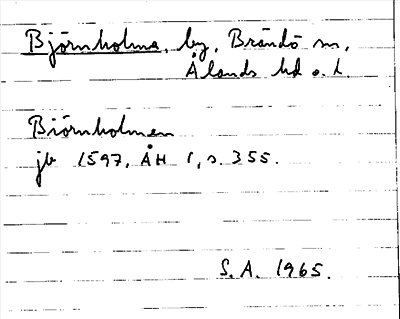 Björnholma, by, Brändö sn,
Ålands hd o. l.
Biörnholmen
jb 1597, ÅH 1, s. 355.
S.A. 1965.